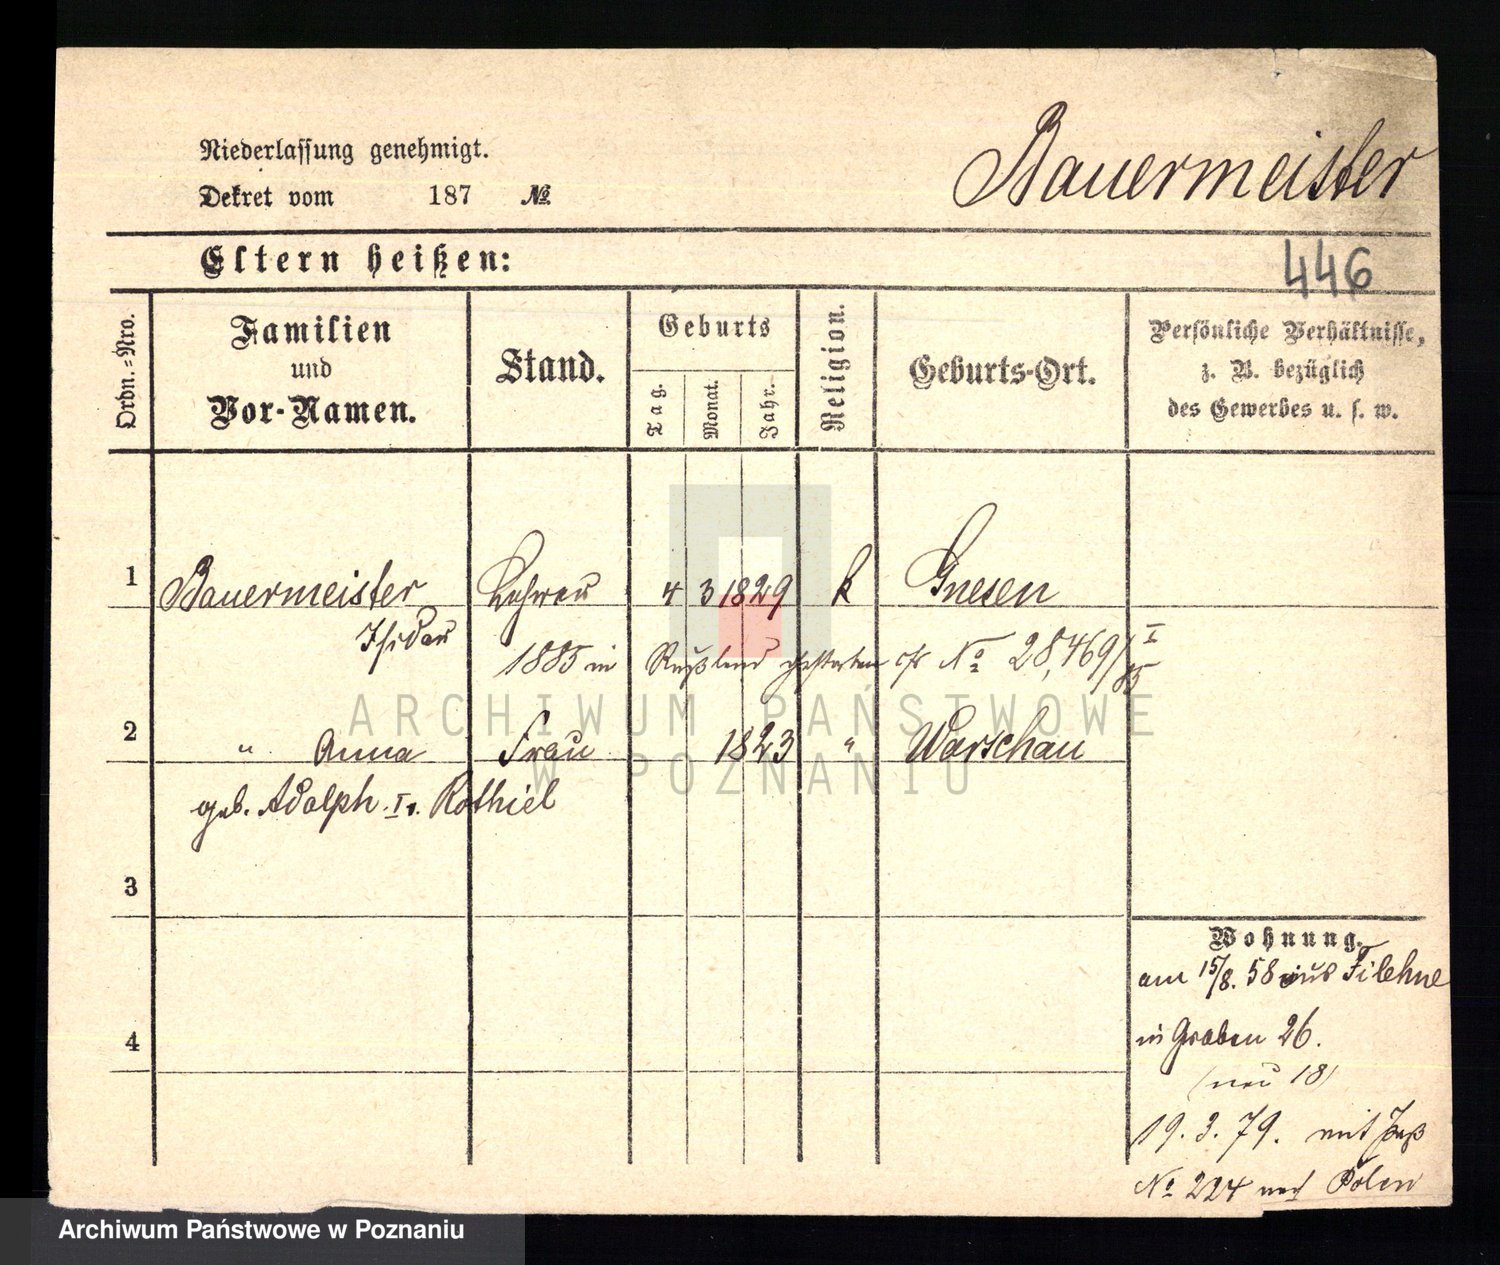 Niederlassung genehmigt.
Dekret vom 187 №
Bauermeister
Eltern heißen:
446
Ordn.=Nro.
Familien
und
Vor-Namen.
Stand.
Geburts
Tag.
Monat.
Jahr.
Religion.
Geburts-Ort.
Persönliche Verhältnisse,
z. B. bezüglich
des Gewerbes u. s. w.
1 Bauermeister 4 3 1829 k Gnesen
Isidor
1885 in Rußland gestorben cfr № 28,469/I 85
2 " Anna Frau 1823 " Warschau
geb. Adolph I v. Rothiel
3
4
Wohnung.
am 15/8. 58 aus Filehne
in Graben 26.
(neu 18)
19. 3. 79. mit Paß
№ 224 nach Polen
ARCHIWUM PAŃSTWOWE
W POZNANIU
Archiwum Państwowe w Poznaniu